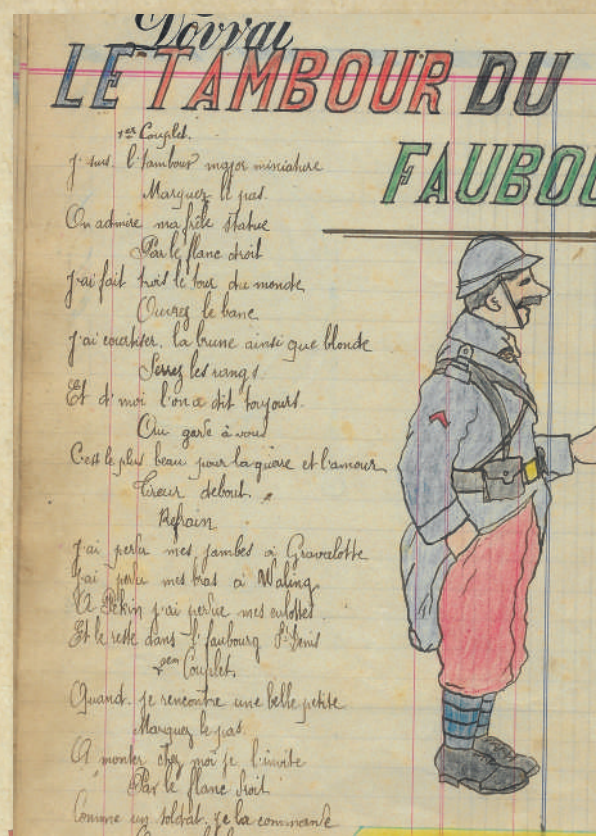 LE TAMBOUR DU
FAUBOU
1er Couplet.
J'suis l'tambour major miniature
Marquez le pas.
On admire ma frêle statue
Par le flanc droit
J'ai fait trois le tour du monde
Ouvrez le banc
J'ai courtiser la brune ainsi que blonde
Serrez les rangs.
Et d'moi l'on a dit toujours.
Ou garde à vous
C'est le plus beau pour la guare et l'amour
Tireur debout.
Refrain
J'ai perdu mes jambes à Gravalotte
J'ai perdu mes bras à
A Pékin j'ai perdue mes culottes.
Et le reste dans l'faubourg St Denis
2em Couplet.
Quand je rencontre une belle petite
Marquez le pas.
A monter chez moi je l'invite
Par le flanc droit
Comme un soldat je la commande